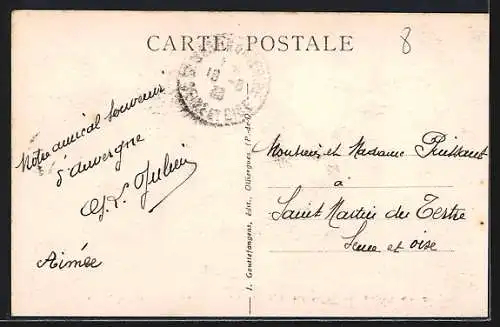 CARTE POSTALE
8
SEINE ET OISE
Notre amical souvenir
d'Auvergne
Aimée
J. Gontlefangeas, édit., Olliergues (P.-de-D.)
Monsieur et Madame Puissant
à
Saint Martin du Tertre
Seine et oise